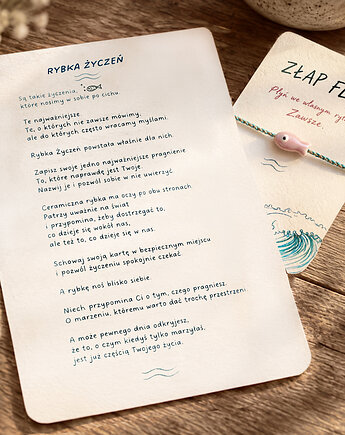 RYBKA ŻYCZEŃ
Są takie życzenia,
które nosimy w sobie po cichu.
Te najważniejsze.
Te, o których nie zawsze mówimy,
ale do których często wracamy myślami.
Rybka Życzeń powstała właśnie dla nich.
Zapisz swoje jedno najważniejsze pragnienie.
To, które naprawdę jest Twoje.
Nazwij je i pozwól sobie w nie uwierzyć.
Ceramiczna rybka ma oczy po obu stronach.
Patrzy uważnie na świat
i przypomina, żeby dostrzegać to,
co dzieje się wokół nas,
ale też to, co dzieje się w nas.
Schowaj swoją kartę w bezpiecznym miejscu
i pozwól życzeniu spokojnie czekać.
A rybkę noś blisko siebie.
Niech przypomina Ci o tym, czego pragniesz.
O marzeniu, któremu warto dać trochę przestrzeni.
A może pewnego dnia odkryjesz,
że to, o czym kiedyś tylko marzyłaś,
jest już częścią Twojego życia.
ZŁAP FL
Płyń we własnym ryt
Zawsze.